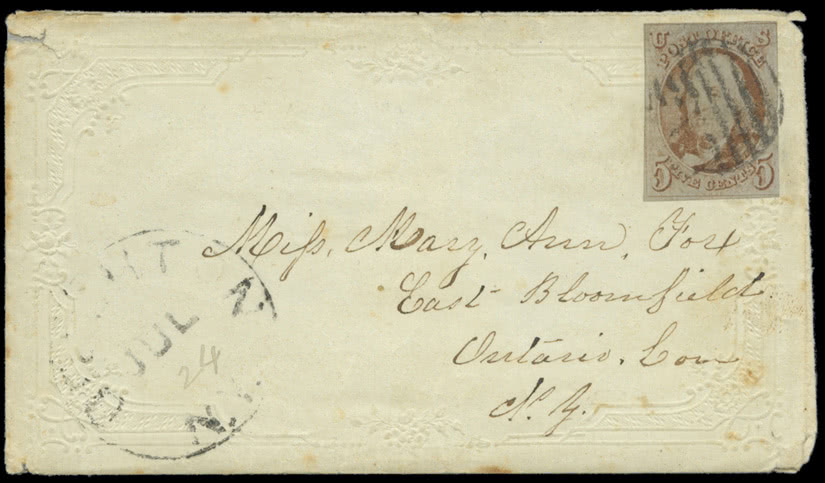 U S
POST OFFICE
5 FIVE CENTS 5
Miſs, Mary, Ann, Fox
East Bloomfield
Ontario. Co
N. Y.
JUL
24
N.Y.